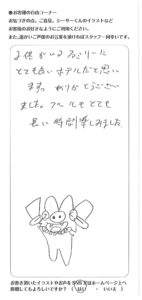 ●お客様の自由コーナー
お気づきの点、ご意見、シーサーくんのイラストなど
お客様のお好きなようにご利用ください。
また、温かいご声援のお言葉を頂ければスタッフ一同幸いです。
子供がいるファミリーに
とても良いホテルだと思い
ます。ありがとうござい
ました。プールもとても
長い時間楽しみました。
お書き頂いたイラストやお声をSNS又はホームページ上へ
掲載してもよろしいですか？（はい ・ いいえ）